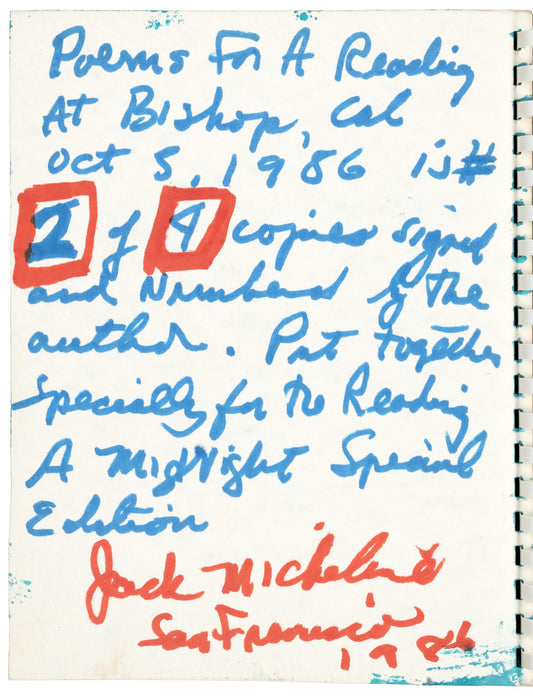 Poems For A Reading
At Bishop, Cal
Oct 5, 1986 is #
2 of 4 copies signed
and Numbered by the
author. Put together
specially for the Reading
A Midnight Special
Edition
Jack Micheline
San Francisco
1986